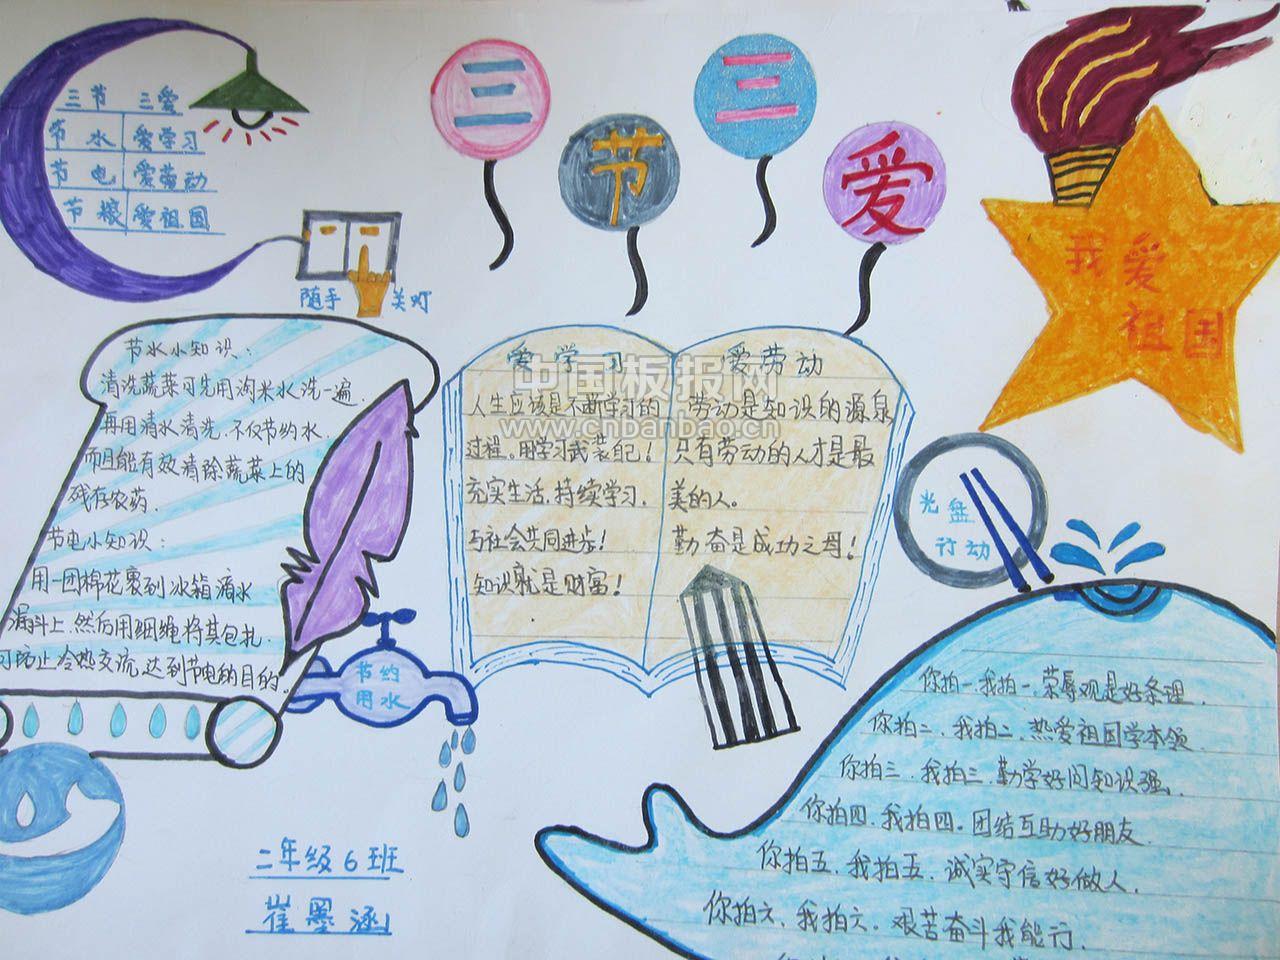 三节三爱
三节 三爱
节水 爱学习
节电 爱劳动
节粮 爱祖国
随手关灯
我爱
祖国
节水小知识:
清洗蔬菜可先用淘米水洗一遍,
再用清水清洗,不仅节约水
而且能有效清除蔬菜上的
残存农药.
节电小知识:
用一团棉花裹到冰箱滴水
漏斗上,然后用细绳将其包扎,
可防止冷热交流,达到节电的目的。
节约
用水
爱学习
人生应该是不断学习的
过程。用学习武装自己!
充实生活,持续学习.
与社会共同进步!
知识就是财富!
爱劳动
劳动是知识的源泉
只有劳动的人才是最
美的人。
勤奋是成功之母!
中国板报网
www.cnbanbao.cn
光盘
行动
你拍一.我拍一.荣辱观是好条理.
你拍二、我拍二、热爱祖国学本领.
你拍三.我拍三.勤学好问知识强.
你拍四.我拍四.团结互助好朋友.
你拍五、我拍五、诚实守信好做人.
你拍六、我拍六.艰苦奋斗我能行.
二年级6班
崔墨涵